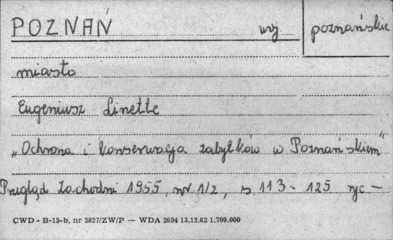 POZNAŃ woj poznańskie
miasto
Eugeniusz Linette
„Ochrona i konserwacja zabytków w Poznańskiem"
Przegląd Zachodni 1955, nr 1/2, s 113 - 125 ryc -
CWD - B-15-b, nr 2827/ZW/P — WDA 2694 13.12.62 1.700.000